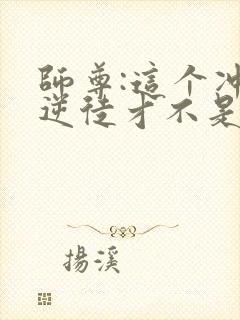 師尊:這个冲
逆徒才不是
揚溪